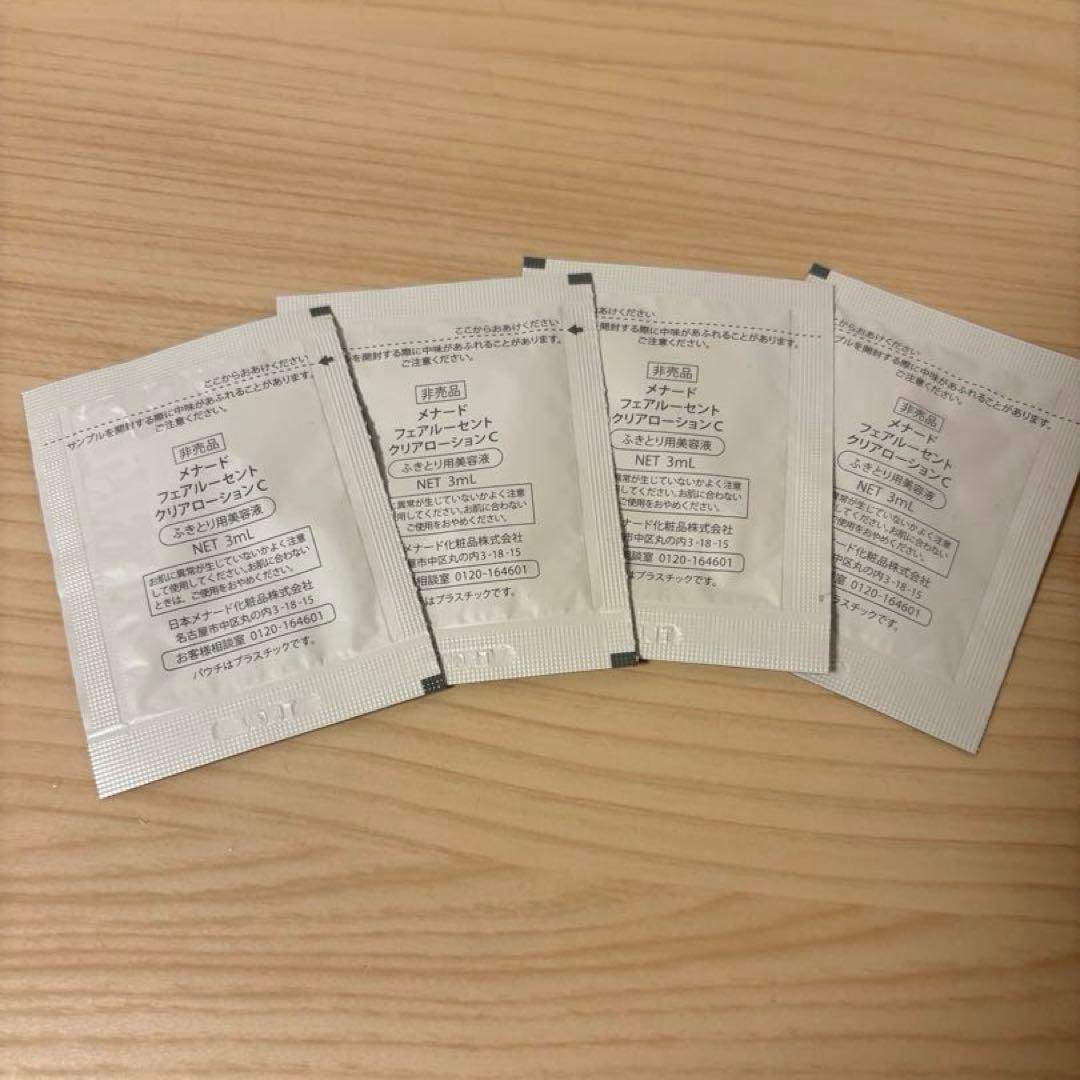 ここからおあけください
サンプルを開封する際に中味があふれることがあります。
ご注意ください。
非売品
メナード
フェアルーセント
クリアローションC
ふきとり用美容液
NET 3mL
お肌に異常が生じていないかよく注意
して使用してください。お肌に合わない
ときは、ご使用をおやめください。
日本メナード化粧品株式会社
名古屋市中区丸の内3-18-15
お客様相談室 0120-164601
パウチはプラスチックです。
ここからおあけください
を開封する際に中味があふれることがあります。
ご注意ください。
非売品
メナード
フェアルーセント
クリアローションC
ふきとり用美容液
NET 3mL
異常が生じていないかよく注意
用してください。お肌に合わない
ご使用をおやめください。
メナード化粧品株式会社
市中区丸の内3-18-15
相談室 0120-164601
はプラスチックです。
あけください
開封する際に中味があふれることがあります。
ご注意ください。
非売品
メナード
フェアルーセント
クリアローションC
ふきとり用美容液
NET 3mL
異常が生じていないかよく注意
してください。お肌に合わない
ご使用をおやめください。
ナード化粧品株式会社
市中区丸の内3-18-15
談室 0120-164601
はプラスチックです。
からおあけください
プルを開封する際に中味があふれることがあります。
ご注意ください。
非売品
メナード
フェアルーセント
クリアローションC
ふきとり用美容液
NET 3mL
異常が生じていないかよく注意
してください。お肌に合わない
ご使用をおやめください。
ード化粧品株式会社
中区丸の内3-18-15
室 0120-164601
ラスチックです。